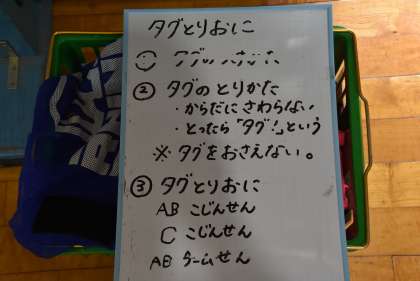 タグとりおに
② タグのとりかた
・からだにさわらない
・とったら「タグ!」という
※ タグをおさえない。
③ タグとりおに
AB こじんせん
C こじんせん
AB チームせん